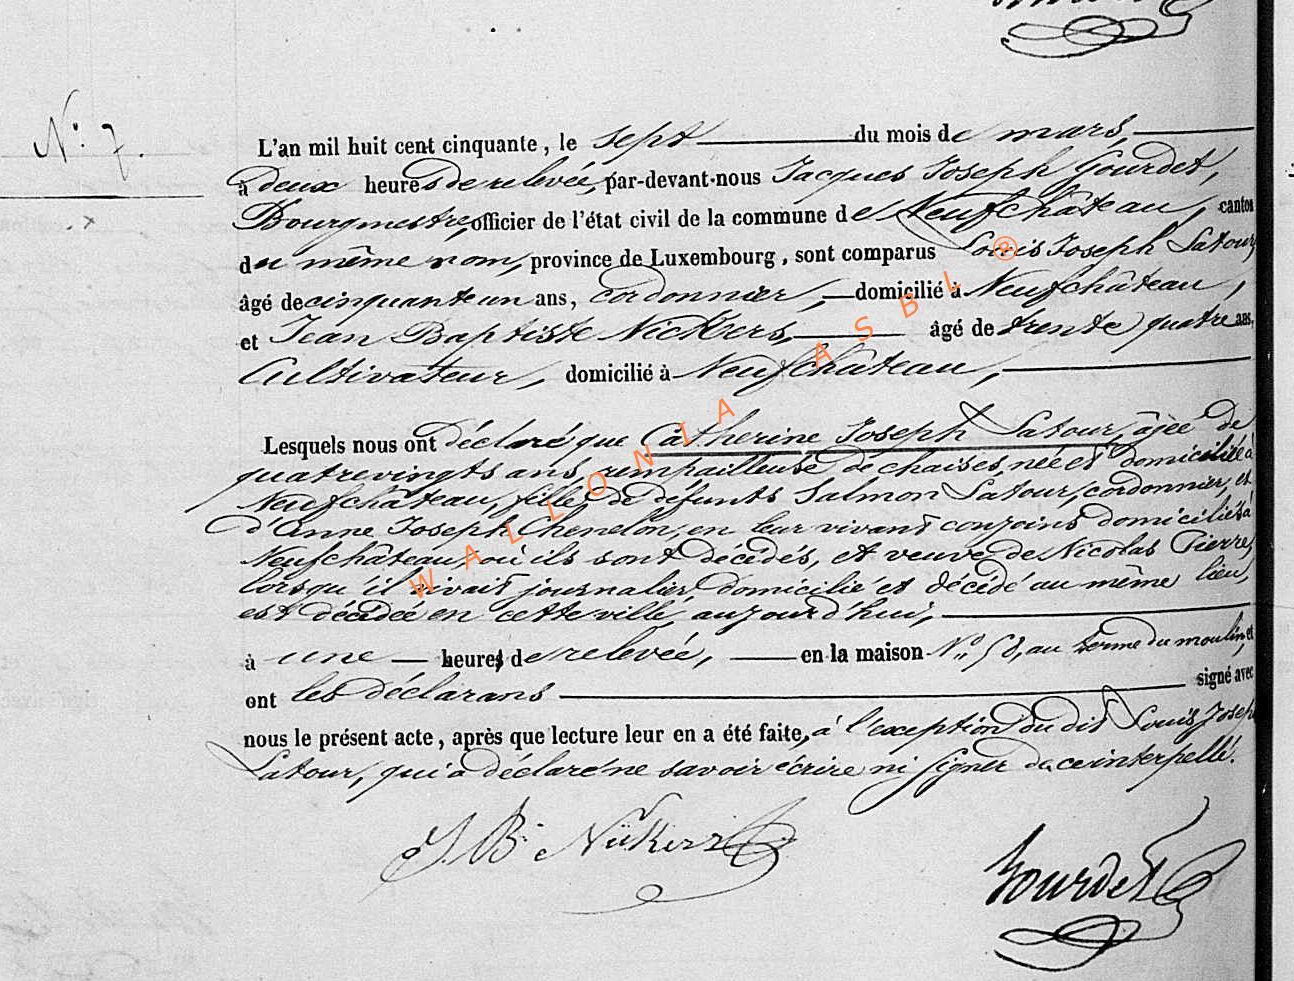 N.° 7.
L'an mil huit cent cinquante, le sept du mois de mars,
à deux heures de relevée, par-devant-nous Jacques Joseph Gourdet,
Bourgmestre, officier de l'état civil de la commune de Neufchâteau, canton
du même nom, province de Luxembourg, sont comparus Louis Joseph Latour,
âgé de cinquante un ans, cordonnier, domicilié à Neufchâteau,
et Jean Baptiste Nickers, âgé de trente quatre ans,
Cultivateur, domicilié à Neufchâteau,
Lesquels nous ont déclaré que Catherine Joseph Latour, âjée de
quatrevingts ans, rempailleuse de chaises, née et domiciliée à
Neufchâteau, fille de défunts Salmon Latour, cordonnier, et
d'Anne Joseph Chenelon, en leur vivant conjoins domiciliés à
Neufchâteau, où ils sont décédés, et veuve de Nicolas Pierre,
lorsqu'il vivait journalier, domicilié et décédé au même lieu,
est décédée en cette ville, aujourd'hui,
à une heures de relevée, en la maison N.° 58, au terme du moulin, et
ont les déclarans signé avec
nous le présent acte, après que lecture leur en a été faite, à l'exception du dit Louis Joseph
Latour, qui a déclaré ne savoir écrire ni signer de ce interpellé.
J. B. Nickers
Gourdet
WALLONIA ASBL ®